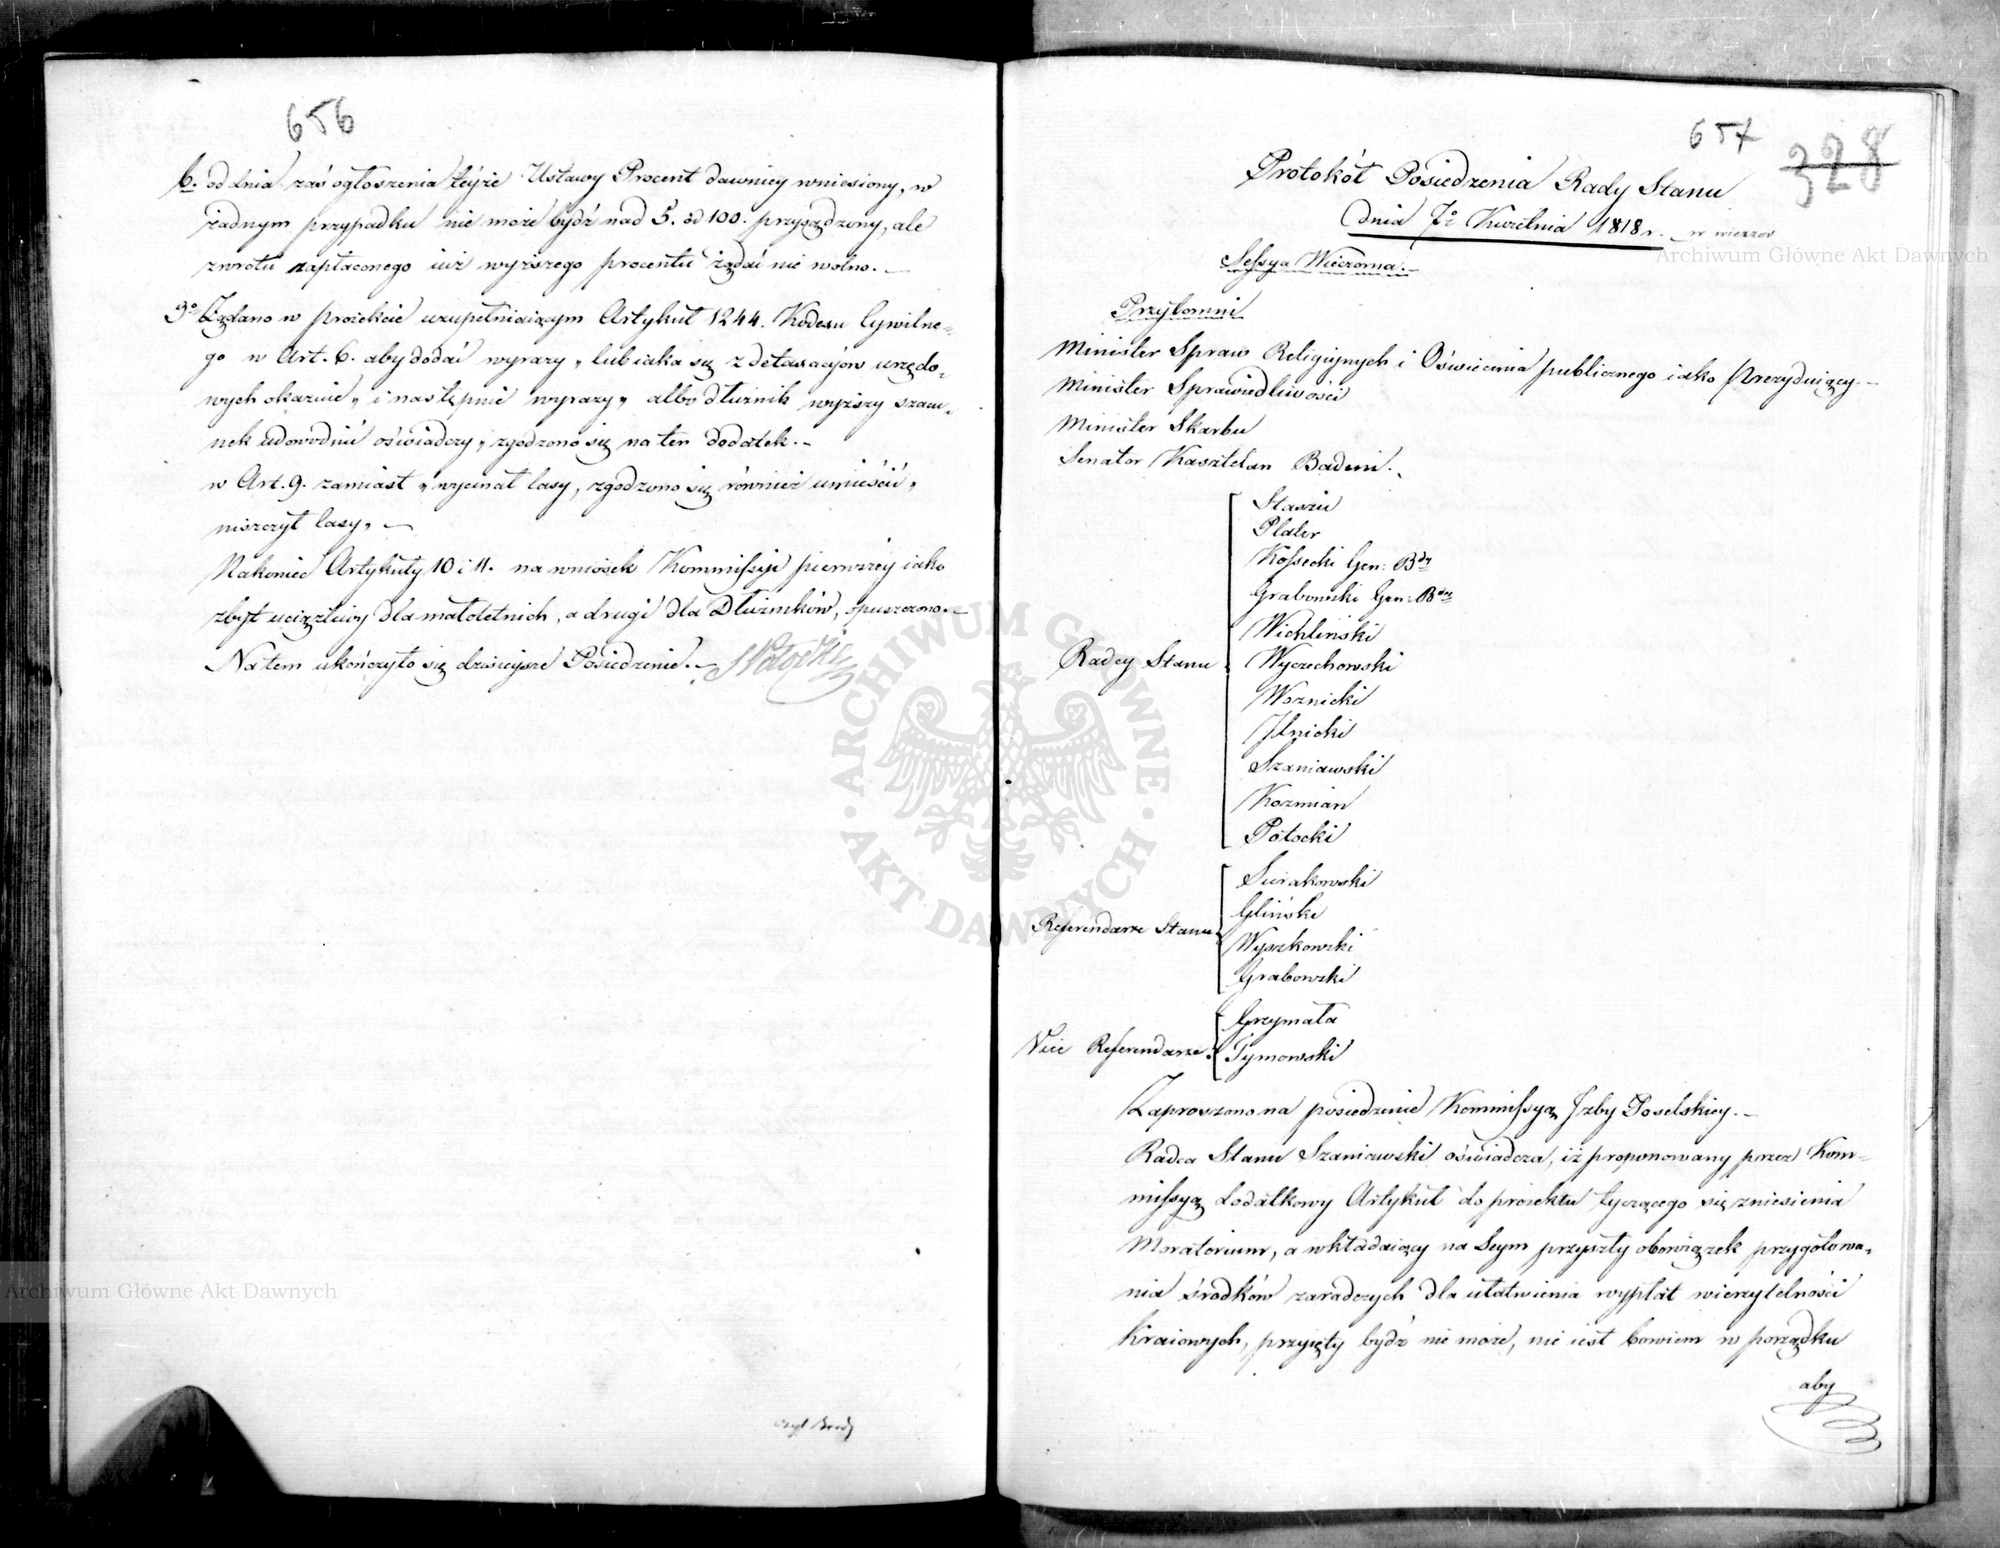 656
b. od dnia zaś ogłoszenia teyże Ustawy Procent dawniey wniesiony, w
żadnym przypadku nie może bydź nad 5. od 100. przysądzony, ale
zwrotu zapłaconego iuż wyższego procentu żądać nie wolno. –
3º Żądano w proiekcie uzupełniaiącym Artykuł 1244. Kodexu Cywilne=
go w Art. 6. aby dodać wyrazy „ lub iaka się z detaxacyów urzędo=
wych okazuie „ i następnie wyrazy „ albo dłużnik wyższy szacu=
nek udowodnić oświadczy „ zgodzono się na ten dodatek. –
w Art. 9. zamiast „ wycinał lasy, zgodzono się również umieścić „
niszczył lasy „ –
Nakoniec Artykuły 10 i 11. na wniosek Kommissyi pierwszy iako
zbyt uciążliwy dla małoletnich, a drugi dla Dłużników, opuszczono. –
Na tem ukończyło się dzisieysze Posiedzenie. –
657
328
Protokół Posiedzenia Rady Stanu
dnia 7º Kwietnia 1818 r. w wieczor
Sessya Wieczorna. –
Przytomni
Minister Spraw Religiynych i Oświecenia publicznego iako Prezyduiący. –
Minister Sprawiedliwości
Minister Skarbu
Senator Kasztelan Badeni.
Staszic
Plater
Kossecki Gen: Bdy
Grabowski Gen: Bdy
Wichliński
Radcy Stanu
Wyczechowski
Woznicki
Jlnicki
Szaniawski
Kozmian
Potocki
Sierakowski
Gliński
Referendarze Stanu
Wyszkowski
Grabowski
Grzymała
Vice Referendarze.
Tymowski
Zaproszono na posiedzenie Kommissyą Jzby Poselskiey. –
Radca Stanu Szaniawski oświadcza, iż proponowany przez Kom=
missyą dodatkowy Artykuł do proiektu tyczącego się zniesienia
Moratorium, a wkładaiący na Seym przyszły obowiązek przygotowa=
nia środków zaradczych dla ułatwienia wypłat wierzytelności
Kraiowych, przyięty bydź nie może, nie iest bowiem w porządku
aby
Archiwum Główne Akt Dawnych
Archiwum Główne Akt Dawnych
ARCHIWUM GŁÓWNE · AKT DAWNYCH ·